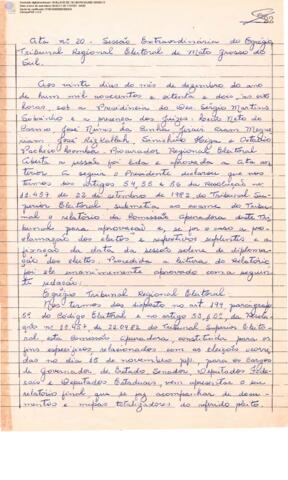 Ata nº 20 - Sessão Extraordinária do Egrégio
Tribunal Regional Eleitoral de Mato Grosso do
Sul.
Aos vinte dias do mês de dezembro do ano
de hum mil novecentos e oitenta e dois às
horas, sob a Presidência do Des. Sérgio Martins
Sobrinho e a presença dos Juízes:
José Nunes da Cunha,
José Rizkallah,
Pacheco, Procurador Regional Eleitoral.
Aberta a sessão foi lida e aprovada a ata an-
terior. A seguir o Presidente declarou que nos
termos dos artigos 54, 55 e 56 da Resolução nº
11.457 de 22 de setembro de 1982, do Tribunal Su-
perior Eleitoral, submetia ao exame do Tribu-
nal o relatório da Comissão Apuradora deste Tri-
bunal para aprovação e, se for o caso a pro-
clamação dos eleitos e respectivos suplentes e a
fixação da data da sessão solene de diploma-
ção dos eleitos. Procedida a leitura do Relatório
foi ele unanimemente aprovado com a seguin-
te redação:
Egrégio Tribunal Regional Eleitoral
Nos termos do disposto no art. 199, parágrafo
5º do Código Eleitoral e no artigo da Resolu-
ção nº 11.457 de 22.09.82 do Tribunal Superior Eleito-
ral, esta Comissão Apuradora constituída para os
fins específicos relacionados com as eleições ocorri-
das no dia 15 de novembro p.p., para os cargos
de Governador de Estado, Senador, Deputados Fede-
rais e Deputados Estaduais, vem apresentar o seu
relatório final que se faz acompanhar de docu-
mentos e mapas totalizadores do referido pleito.